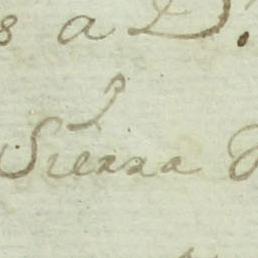 s a D.
Sierra